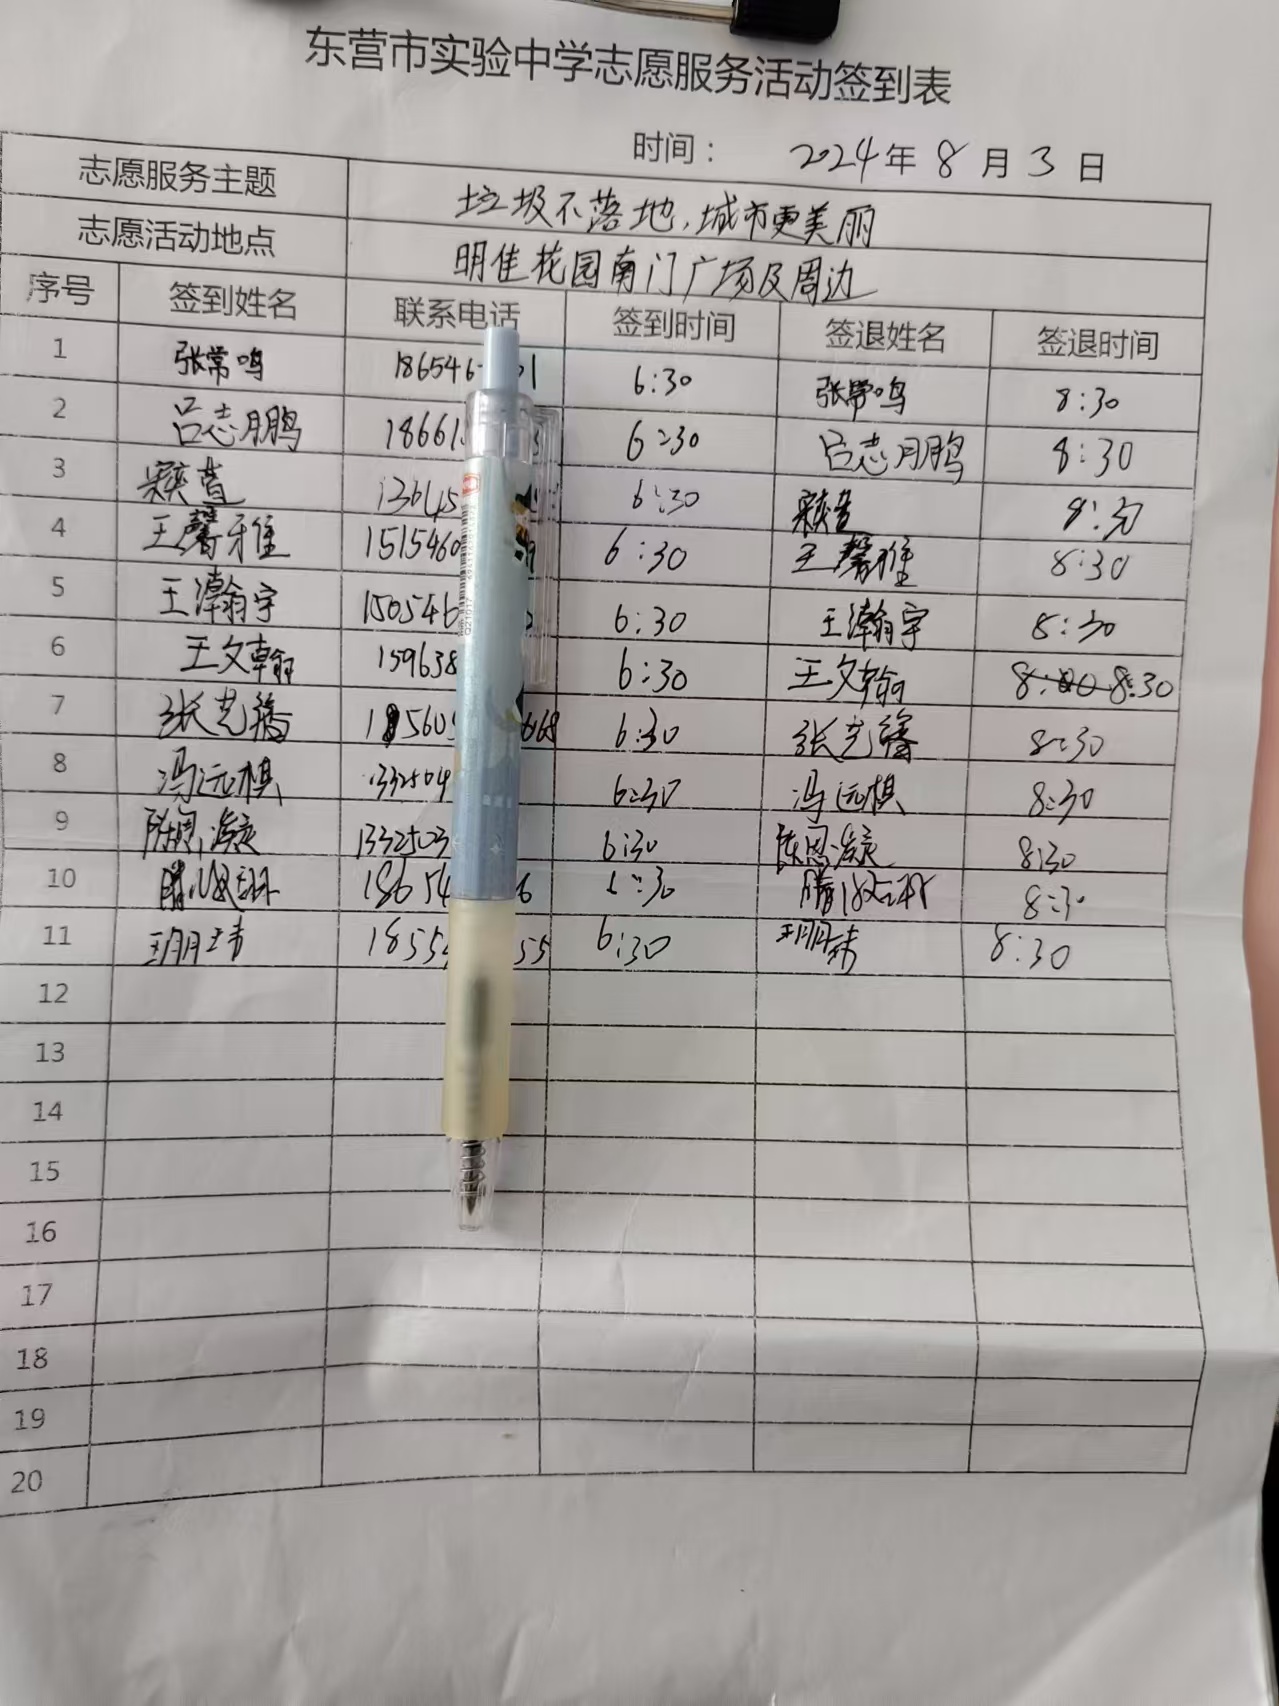 东营市实验中学志愿服务活动签到表
时间： 2024年8月3日
志愿服务主题 垃圾不落地,城市更美丽
志愿活动地点 明佳花园南门广场及周边
序号 签到姓名 联系电话 签到时间 签退姓名 签退时间
1 张常鸣 186546 01 6:30 张常鸣 8:30
2 吕志鹏 18661 6:30 吕志鹏 8:30
3 13645 6:30 8:30
4 王馨雅 1515460 6:30 王馨雅 8:30
5 王瀚宇 150546 6:30 王瀚宇 8:30
6 王文翰 159638 6:30 王文翰 8:30
7 张艺馨 668 6:30 张艺馨 8:30
8 冯远棋 1332504 6:30 冯远棋 8:30
9 1332503 6:30 8:30
10 18654 6 6:30 8:30
11 1855 55 6:30 8:30
12
13
14
15
16
17
18
19
20